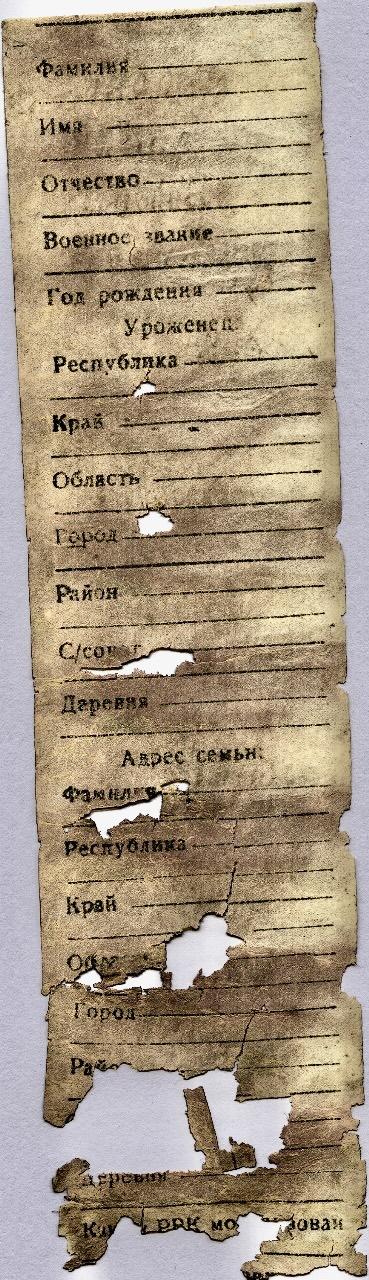 Фамилия
Имя
Отчество
Военное звание
Год рождения
Уроженец:
Республика
Край
Область
Город
Район
С/со
Деревня
Адрес семьи:
Фамилия
Республика
Край
Об
Город
Рай
Деревня
РВК мо зован